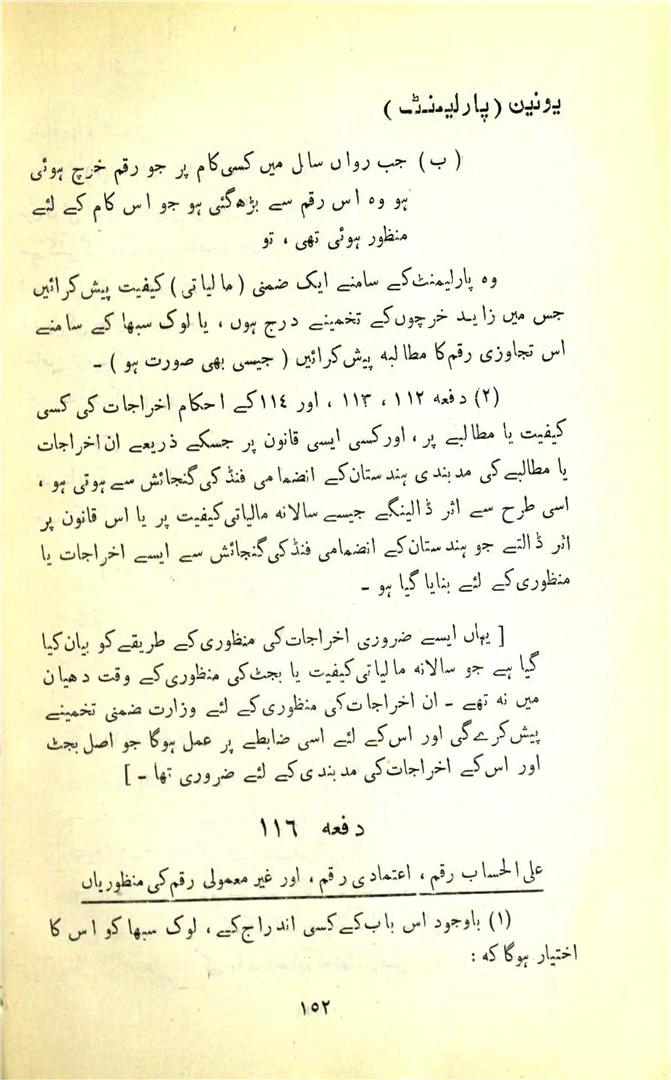 یونین (پارلیمنٹ)
(ب) جب رواں سال میں کسی کام پر جو رقم خرچ ہوئی
ہو وہ اس رقم سے بڑھ گئی ہو جو اس کام کے لئے
منظور ہوئی تھی ، تو
وہ پارلیمنٹ کے سامنے ایک ضمنی (مالیاتی) کیفیت پیش کرائیں
جس میں زاید خرچوں کے تخمینے درج ہوں ، یا لوک سبھا کے سامنے
اس تجاوزی رقم کا مطالبہ پیش کرائیں (جیسی بھی صورت ہو) ۔
(۲) دفعہ ۱۱۲ ، ۱۱۳ ، اور ۱۱٤ کے احکام اخراجات کی کسی
کیفیت یا مطالبے پر ، اور کسی ایسی قانون پر جسکے ذریعے ان اخراجات
یا مطالبے کی مدبندی ہندستان کے انضمامی فنڈ کی گنجائش سے ہوتی ہو ،
اسی طرح سے اثر ڈالینگے جیسے سالانہ مالیاتی کیفیت پر یا اس قانون پر
اثر ڈالتے جو ہندستان کے انضمامی فنڈ کی گنجائش سے ایسے اخراجات یا
منظوری کے لئے بنایا گیا ہو ۔
[ یہاں ایسے ضروری اخراجات کی منظوری کے طریقے کو بیان کیا
گیا ہے جو سالانہ مالیاتی کیفیت یا بجٹ کی منظوری کے وقت دھیان
میں نہ تھے ۔ ان اخراجات کی منظوری کے لئے وزارت ضمنی تخمینے
پیش کرے گی اور اس کے لئے اسی ضابطے پر عمل ہوگا جو اصل بجٹ
اور اس کے اخراجات کی مدبندی کے لئے ضروری تھا ۔ ]
دفعہ ۱۱٦
علی الحساب رقم ، اعتمادی رقم ، اور غیر معمولی رقم کی منظوریاں
(۱) باوجود اس باب کے کسی اندراج کے ، لوک سبھا کو اس کا
اختیار ہوگا کہ :
۱۵۲